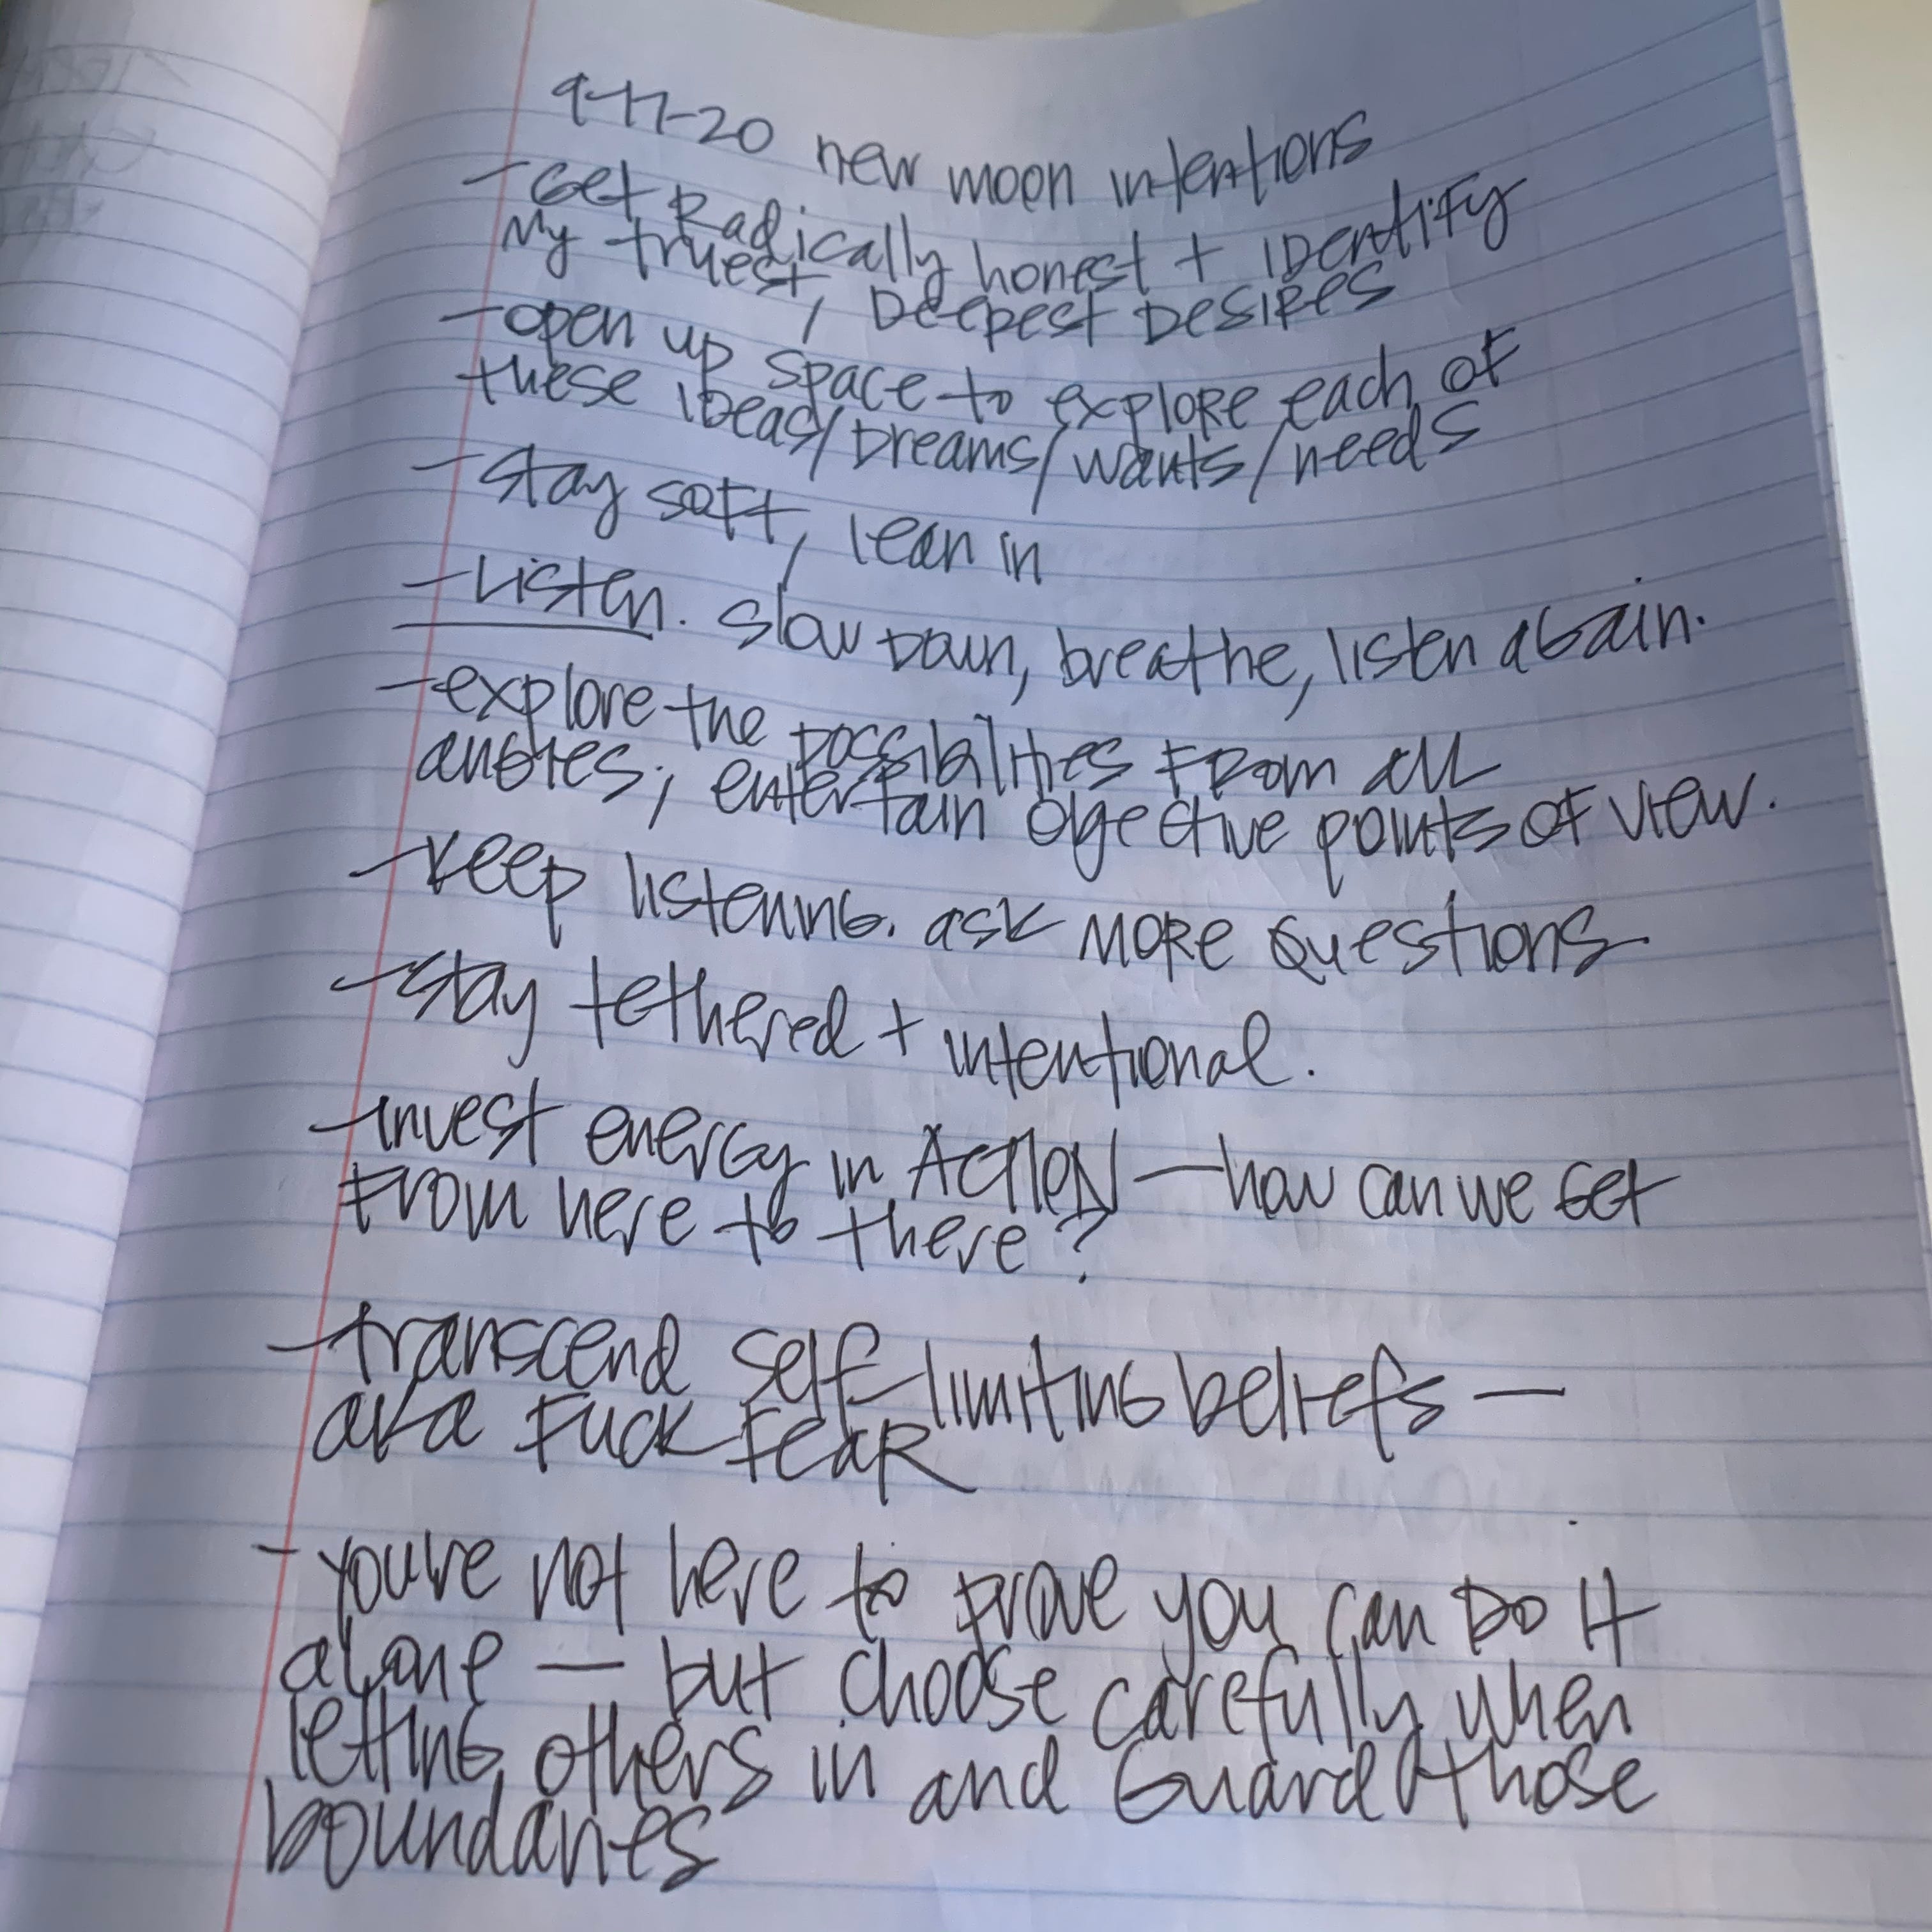 9-17-20 new moon intentions
- Get Radically honest + IDentify
My truest, Deepest Desires
- open up space to explore each of
these iDeas/Dreams/wants/needs
- stay soft, lean in
- Listen. Slow Down, breathe, listen again.
- explore the possibilities from all
angles; entertain objective points of view.
- keep listening. ask more Questions.
- stay tethered + intentional.
- invest energy in ACTION — how can we Get
from here to there?
- transcend self-limiting beliefs —
aka Fuck FeaR
- you're not here to prove you can Do it
alone — but choose carefully when
letting others in and Guard those
boundaries